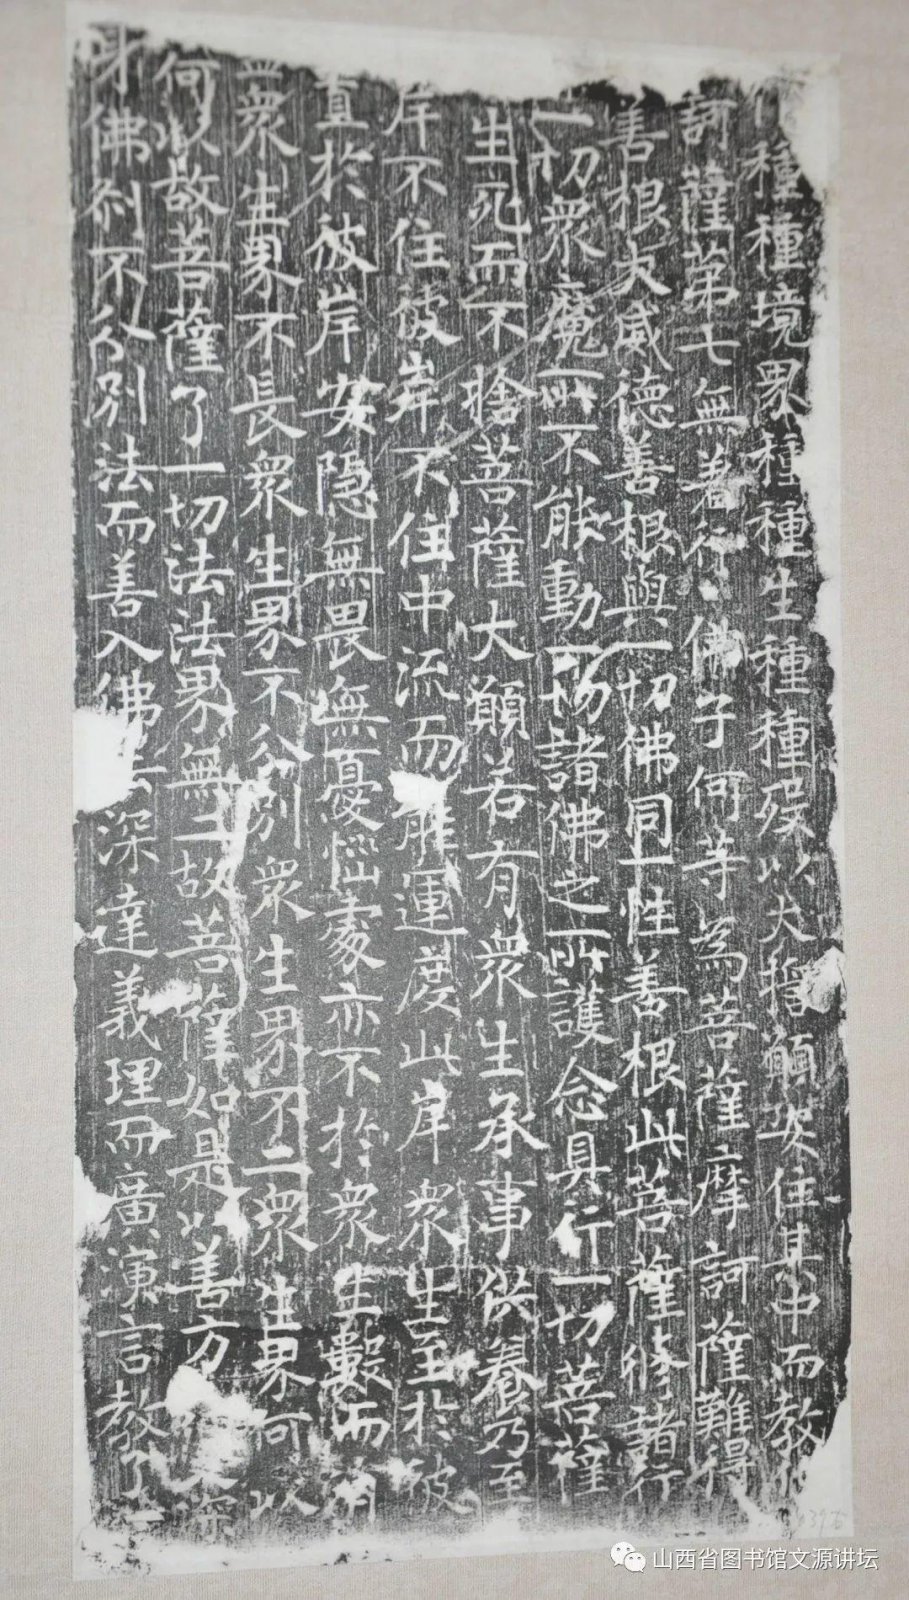 種種境界種種生種種歿以大誓願安住其中而教化
訶薩第七無著行佛子何等為菩薩摩訶薩難得
善根大威德善根與一切佛同一性善根此菩薩修諸行
一切眾魔所不能動一切諸佛之所護念具行一切菩薩
生死而不捨菩薩大願若有眾生承事供養乃至
岸不住彼岸不住中流而能運度此岸眾生至於彼
直於彼岸安隱無畏無憂惱處亦不於眾生數而有
眾生界不長眾生界不分別眾生界不二眾生界何以
何以故菩薩了一切法法界無二故菩薩如是以善方便深
身佛剎不分別法而善入佛法深達義理而廣演言教了
山西省图书馆文源讲坛